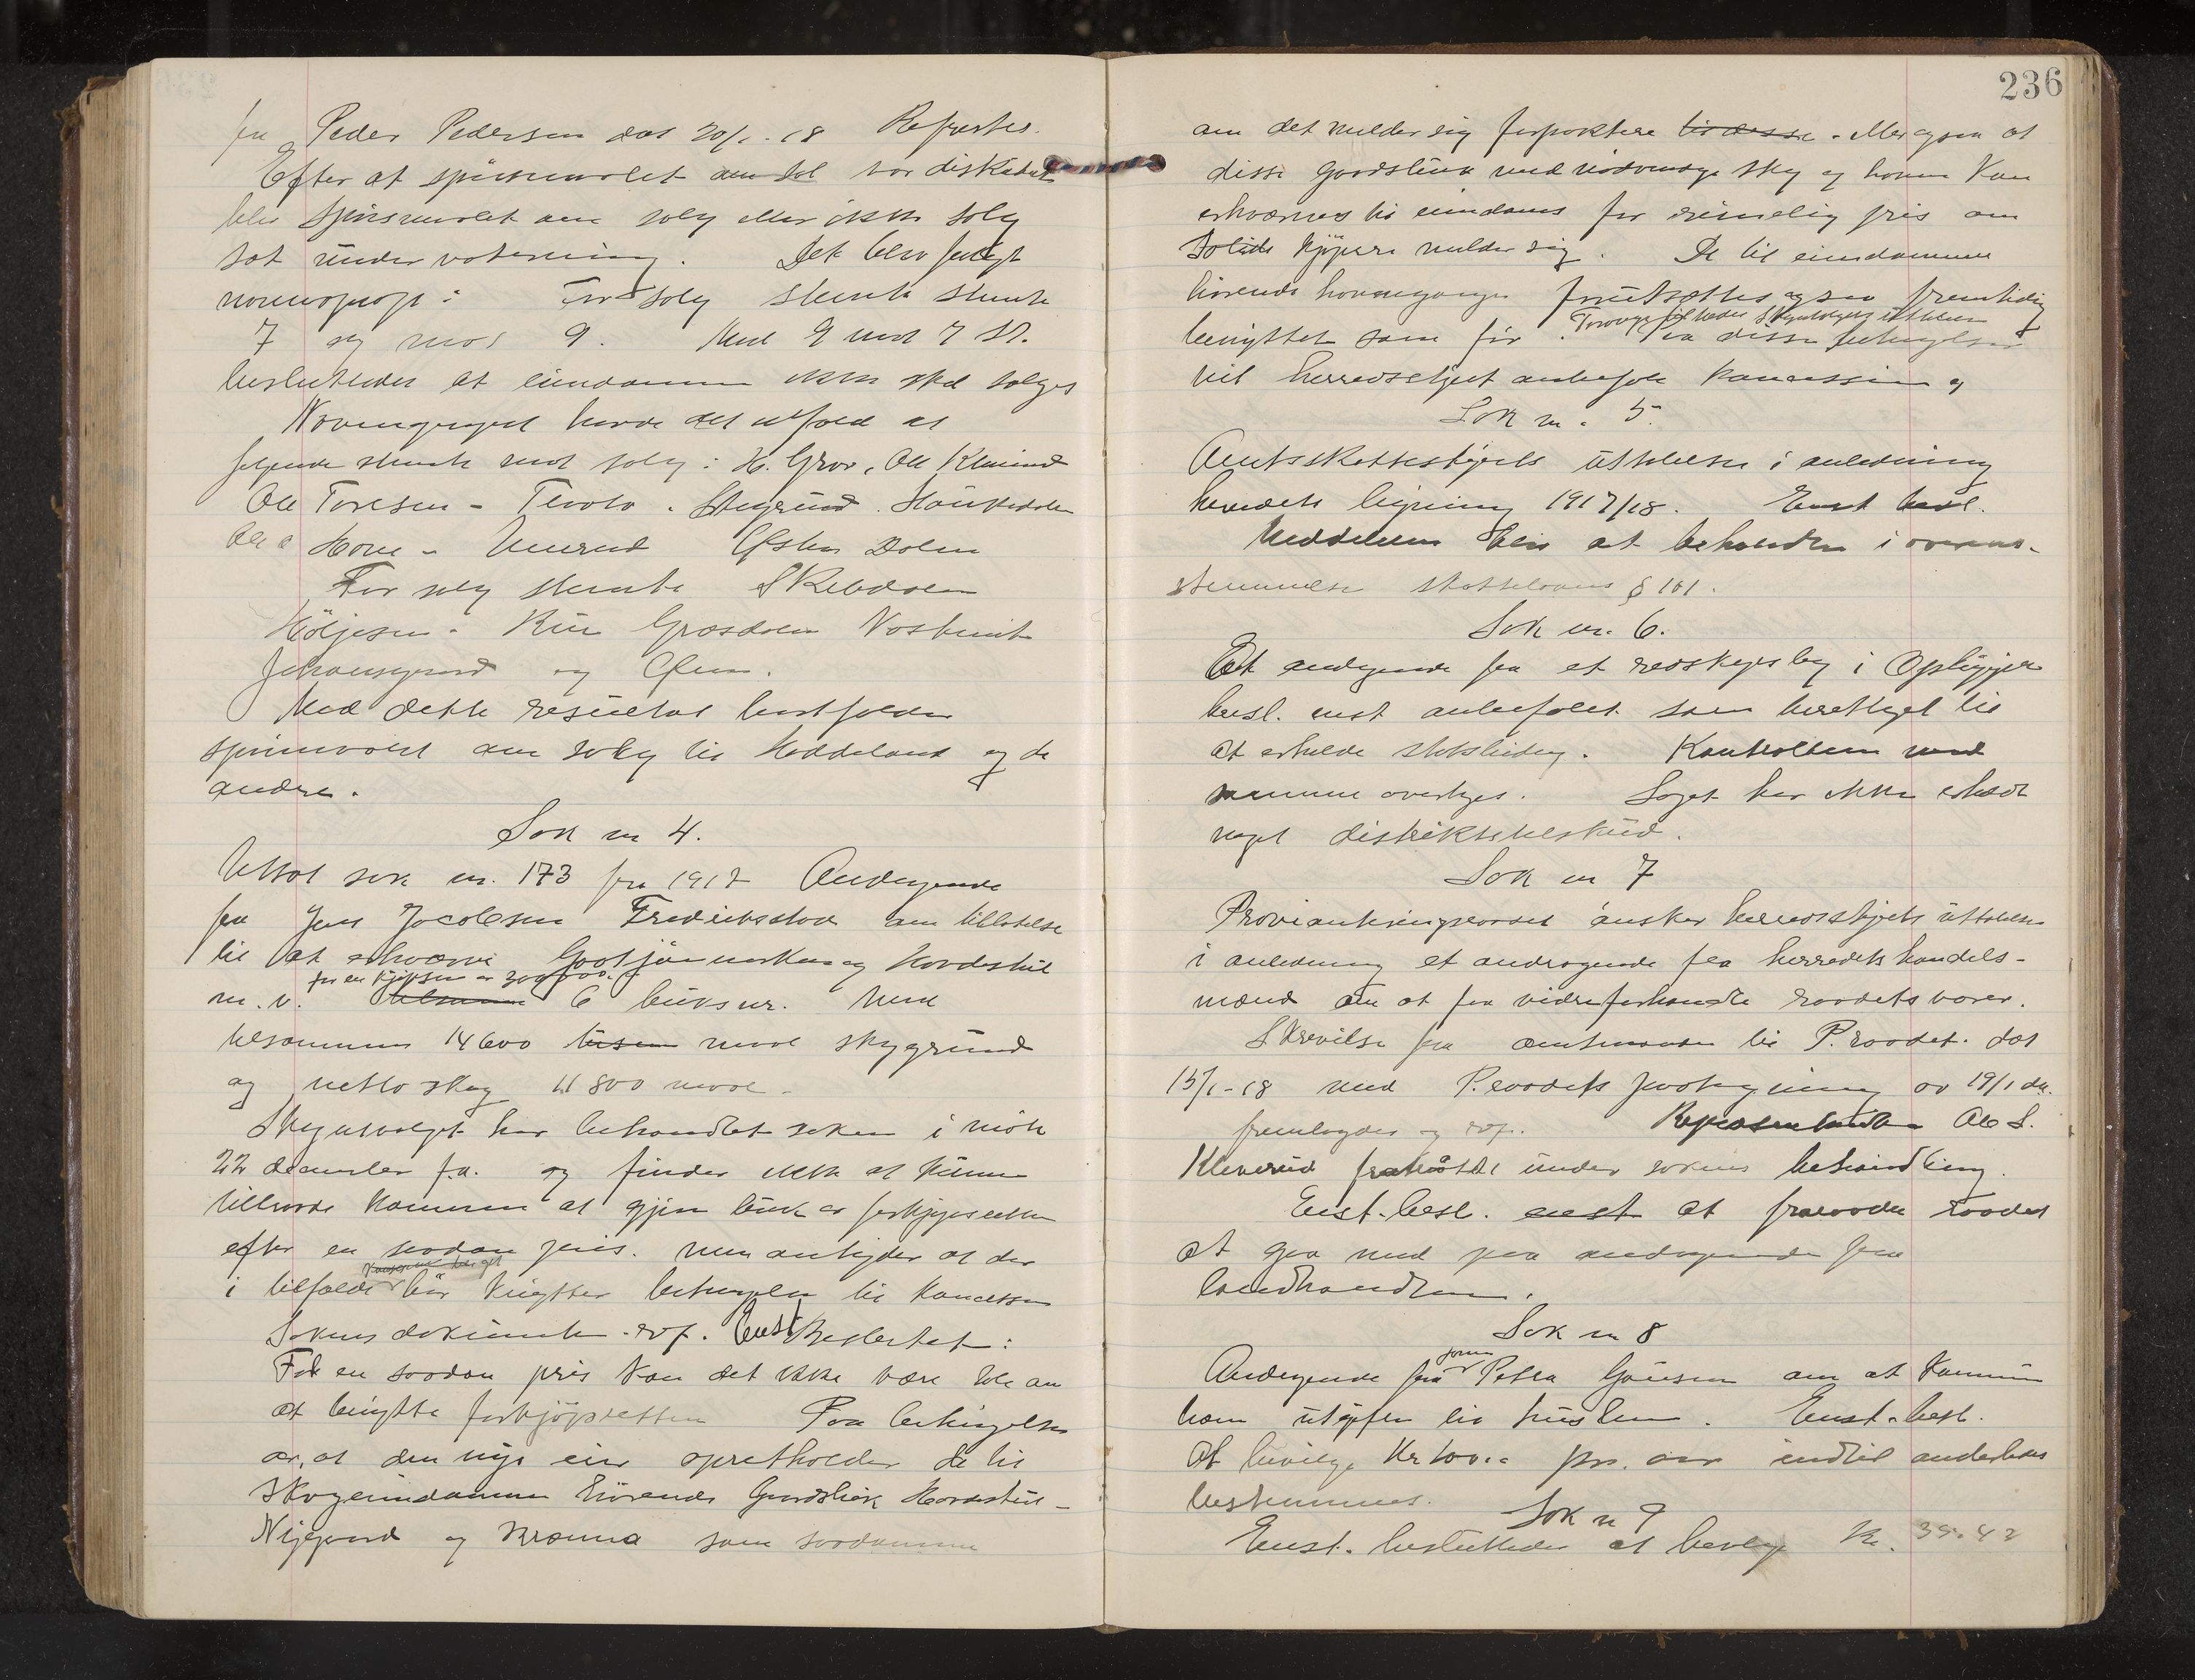 fra Peder Pedersen dat 20/1-18 Refertes.
Efter at spörsmaalet om sal var diskutert
blev spörsmaalet om salg eller ikke salg
sat under votering. Det blev foretat
navneoprop: For salg stemte
7 og mot 9. Med 9 mot 7 st.
besluttedes at eiendommen ikke skal sælges
Navneopropet havde det utfald at
følgende stemte mot salg: H. Grov, Ole Kleverud
Ole Toresen - Tveota . Stegrud . Haukedalen
Ole Hove - Østen Dolen
For salg stemte Skebdalen
Köljesen - Græsdalen
Johansgaard og
Med dette resultat bortfalder
spörsmaalet om salg til Haddeland og de
andre.
Sak nr 4.
Utsat sak nr. 173 fra 1917 Andragende
fra Jens Jacobsen Fredriksstad om tilladelse
til at erhverve og Hovdestul
for en kjøpesum av 300,000.
m.v. tilsammen 6 bruksnr. Med
tilsammen 14600 tusen maal skoggrund
og netto skog 11800 maal.
Skogutvalget har behandlet saken i möte
22 december f.a. og finder ikke at kunne
tilraade kommunen at gjøre bruk av forkjøpsretten
efter en saadan pris. men antyder at der
i tilfælde bör knyttes betingelser til koncessionen
Sakens dokumenter ref. Enst. Besluttet:
For en saadan pris kan det ikke være tale om
at benytte forkjöpsretten Paa betingelse
av, at den nye eier opretholder de til
skogeiendommen hörende Gaardsbruk Hovdestul -
Nygaard og Kræmma som saadanne
236
om det melder sig forpaktere til disse. Eller ogsaa at
disse gaardsbruk med nödvendige skog og havn kan
erhverves til eiendoms for rimelig pris om
Solide kjöpere melder sig. De til eiendommen
hörende havnegange forutsættes ogsaa fremtidig
benyttet som för. Paa disse betingelser
vil herredsstyret anbefale koncession
Sak nr. 5.
Amtsskattestyrets uttalelse i anledning
herredets ligning 1917/18. Enst besl.
Meddelelsen blir at behandle i overens-
stemmelse skatteloven § 101.
Sak nr. 6.
Et andragende fra et redskapslag i
besl. enst anbefalet som berettiget til
at erholde statsbidrag. Kontrollen med
samme overtages. Laget har ikke erholdt
noget distriktstilskud.
Sak nr 7
Provianteringsraadet önsker herredsstyrets uttalelse
i anledning et andragende fra herredets handels-
mænd om at faa videreforhandle raadets varer.
Skrivelse fra amtmanden til P.raadet. dat
15/1-18 med P.raadets paategning av 19/1 ds.
fremlagdes og ref. Repræsentanten Ole S.
Kleverud fratraadte under sakens behandling.
Enst. besl. enst at fraraade raadet
at gaa med paa andragende fra
landhandlerne.
Sak nr 8
Andragende fra Petra om at kommunen
Enst. besl.
At bevilge Kr 100.- pr. aar indtil anderledes
bestemmes.
Sak nr 9
Enst. besluttedes at bevilge Kr. 35.42